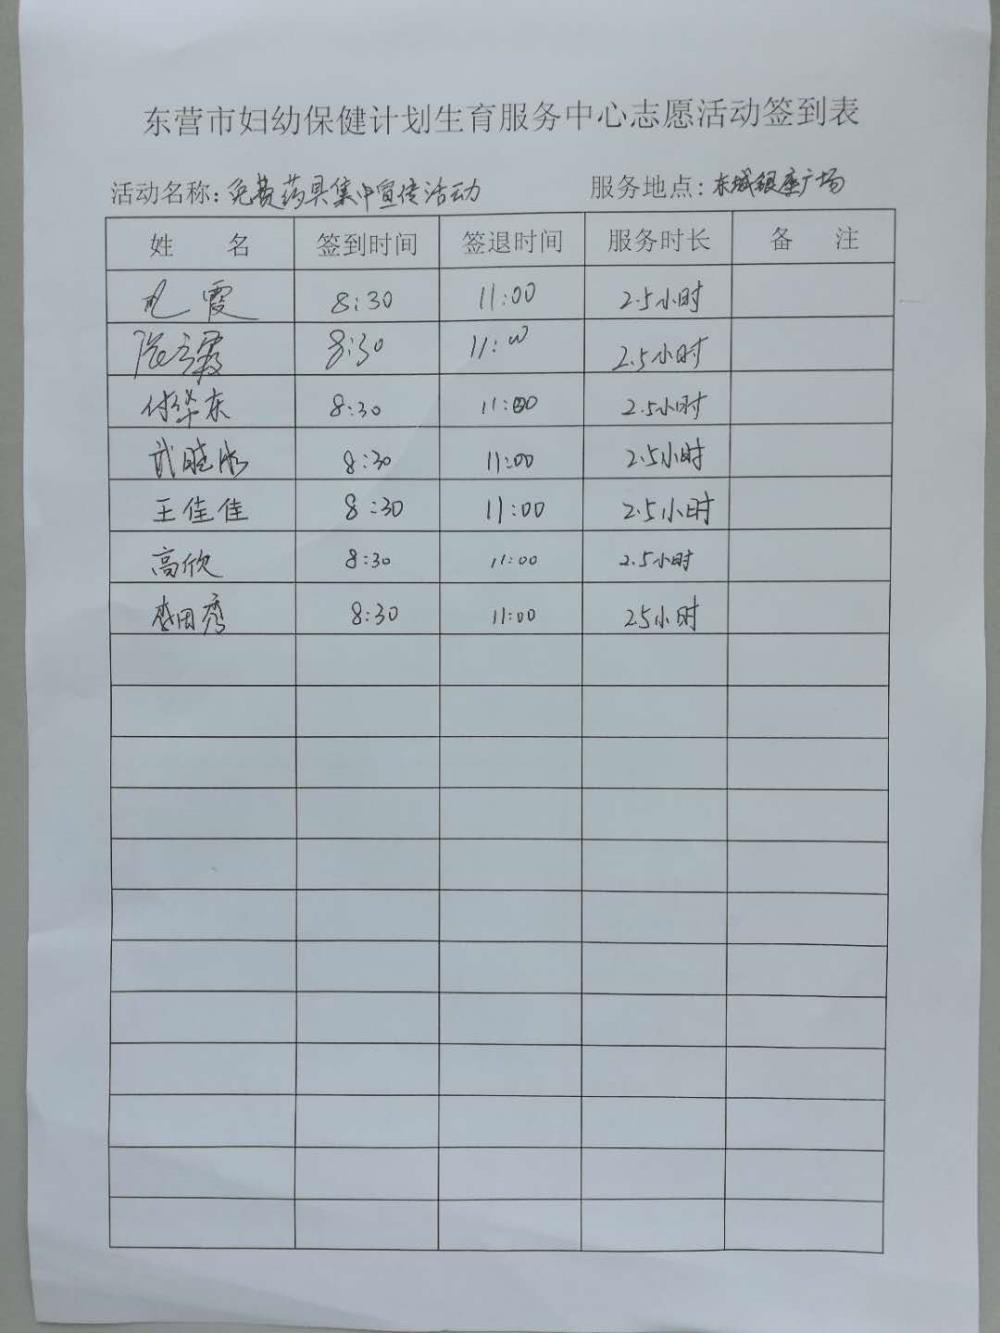 东营市妇幼保健计划生育服务中心志愿活动签到表
活动名称：免费药具集中宣传活动 服务地点：东城银座广场
姓 名 签到时间 签退时间 服务时长 备 注
霞 8:30 11:00 2.5小时
8:30 11:00 2.5小时
付华东 8:30 11:00 2.5小时
武晓 8:30 11:00 2.5小时
王佳佳 8:30 11:00 2.5小时
高欣 8:30 11:00 2.5小时
李田秀 8:30 11:00 2.5小时